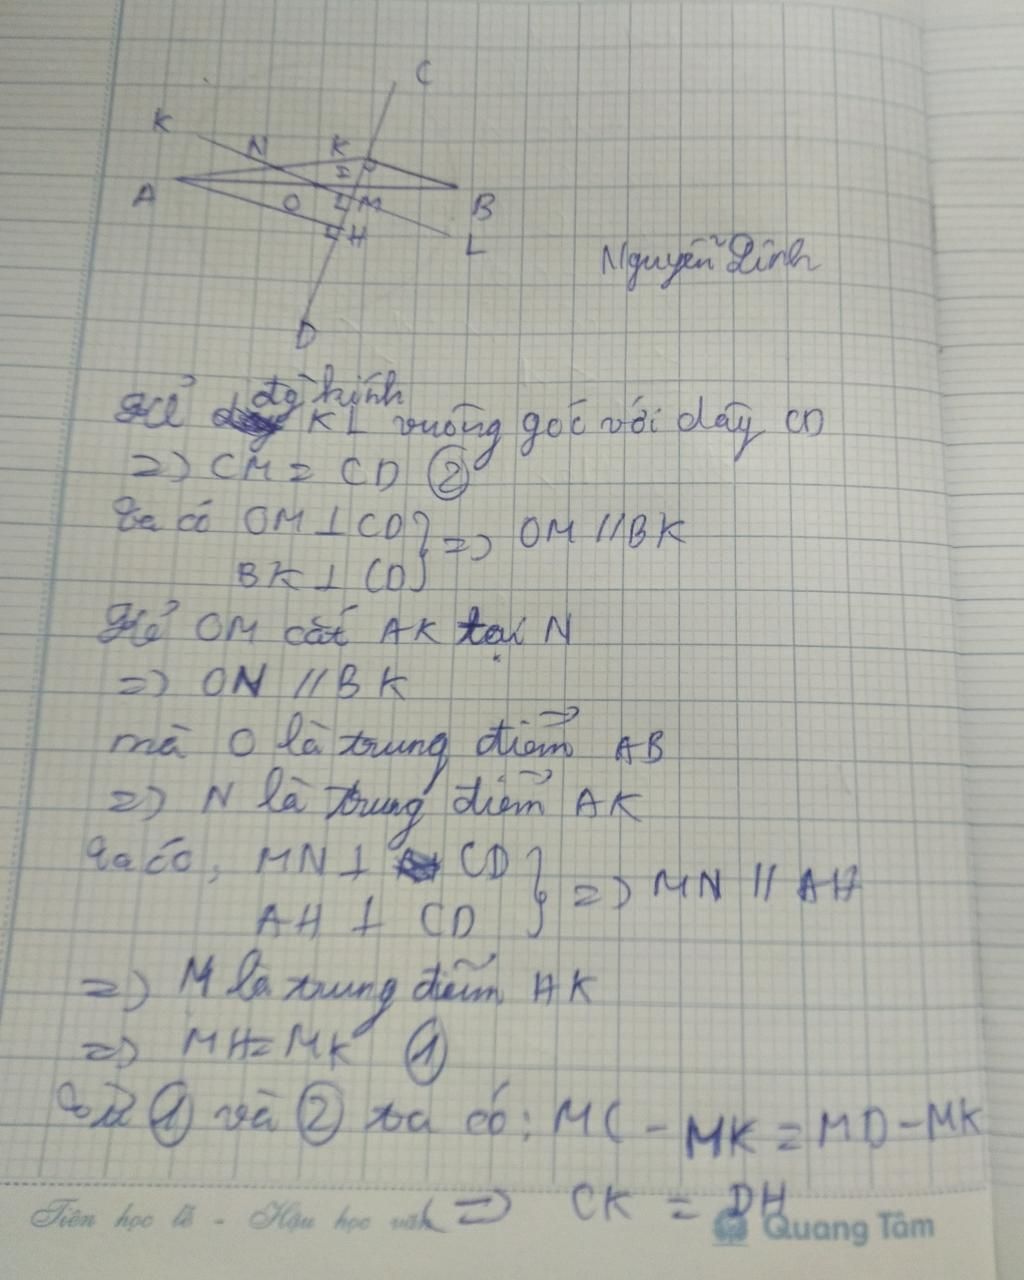 C
K
N
K
I
A
O
M
B
H
L
Nguyễn Linh
D
Kẻ đg kính KL vuông góc với dây CD
=> CM = CD ②
Ta có OM ⊥ CD
BK ⊥ CD } => OM // BK
Kẻ OM cắt AK tại N
=> ON // BK
mà O là trung điểm AB
=> N là trung điểm AK
Ta có, MN ⊥ CD
AH ⊥ CD } => MN // AH
=> M là trung điểm HK
=> MH = MK ①
Từ ① và ② ta có: MC - MK = MD - MK
=> CK = DH
Tiên học lễ - Hậu học văn
Quang Tâm